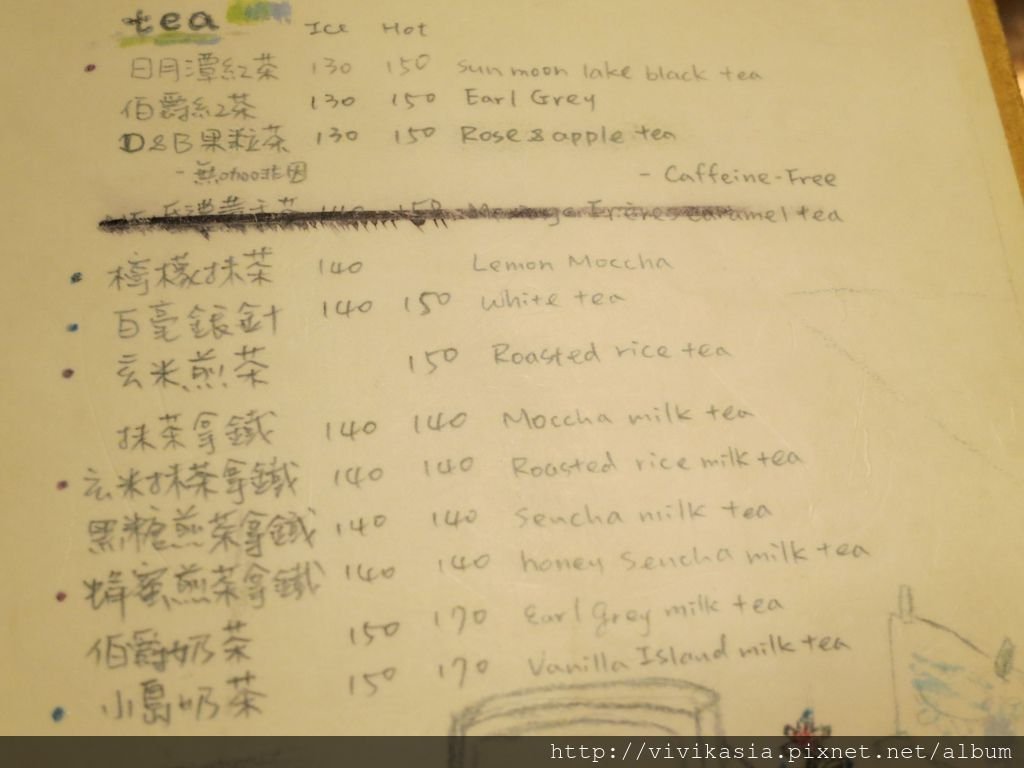 tea Ice Hot
日月潭紅茶 130 150 sun moon lake black tea
伯爵紅茶 130 150 Earl Grey
D&B果粒茶 130 150 Rose & apple tea
- 無咖啡因 - Caffeine-Free
caramel tea
檸檬抹茶 140 Lemon Moccha
白毫銀針 140 150 White tea
玄米煎茶 150 Roasted rice tea
抹茶拿鐵 140 140 Moccha milk tea
玄米抹茶拿鐵 140 140 Roasted rice milk tea
黑糖煎茶拿鐵 140 140 Sencha milk tea
蜂蜜煎茶拿鐵 140 140 honey Sencha milk tea
伯爵奶茶 150 170 Earl Grey milk tea
小島奶茶 150 170 Vanilla Island milk tea
http://vivikasia.pixnet.net/album